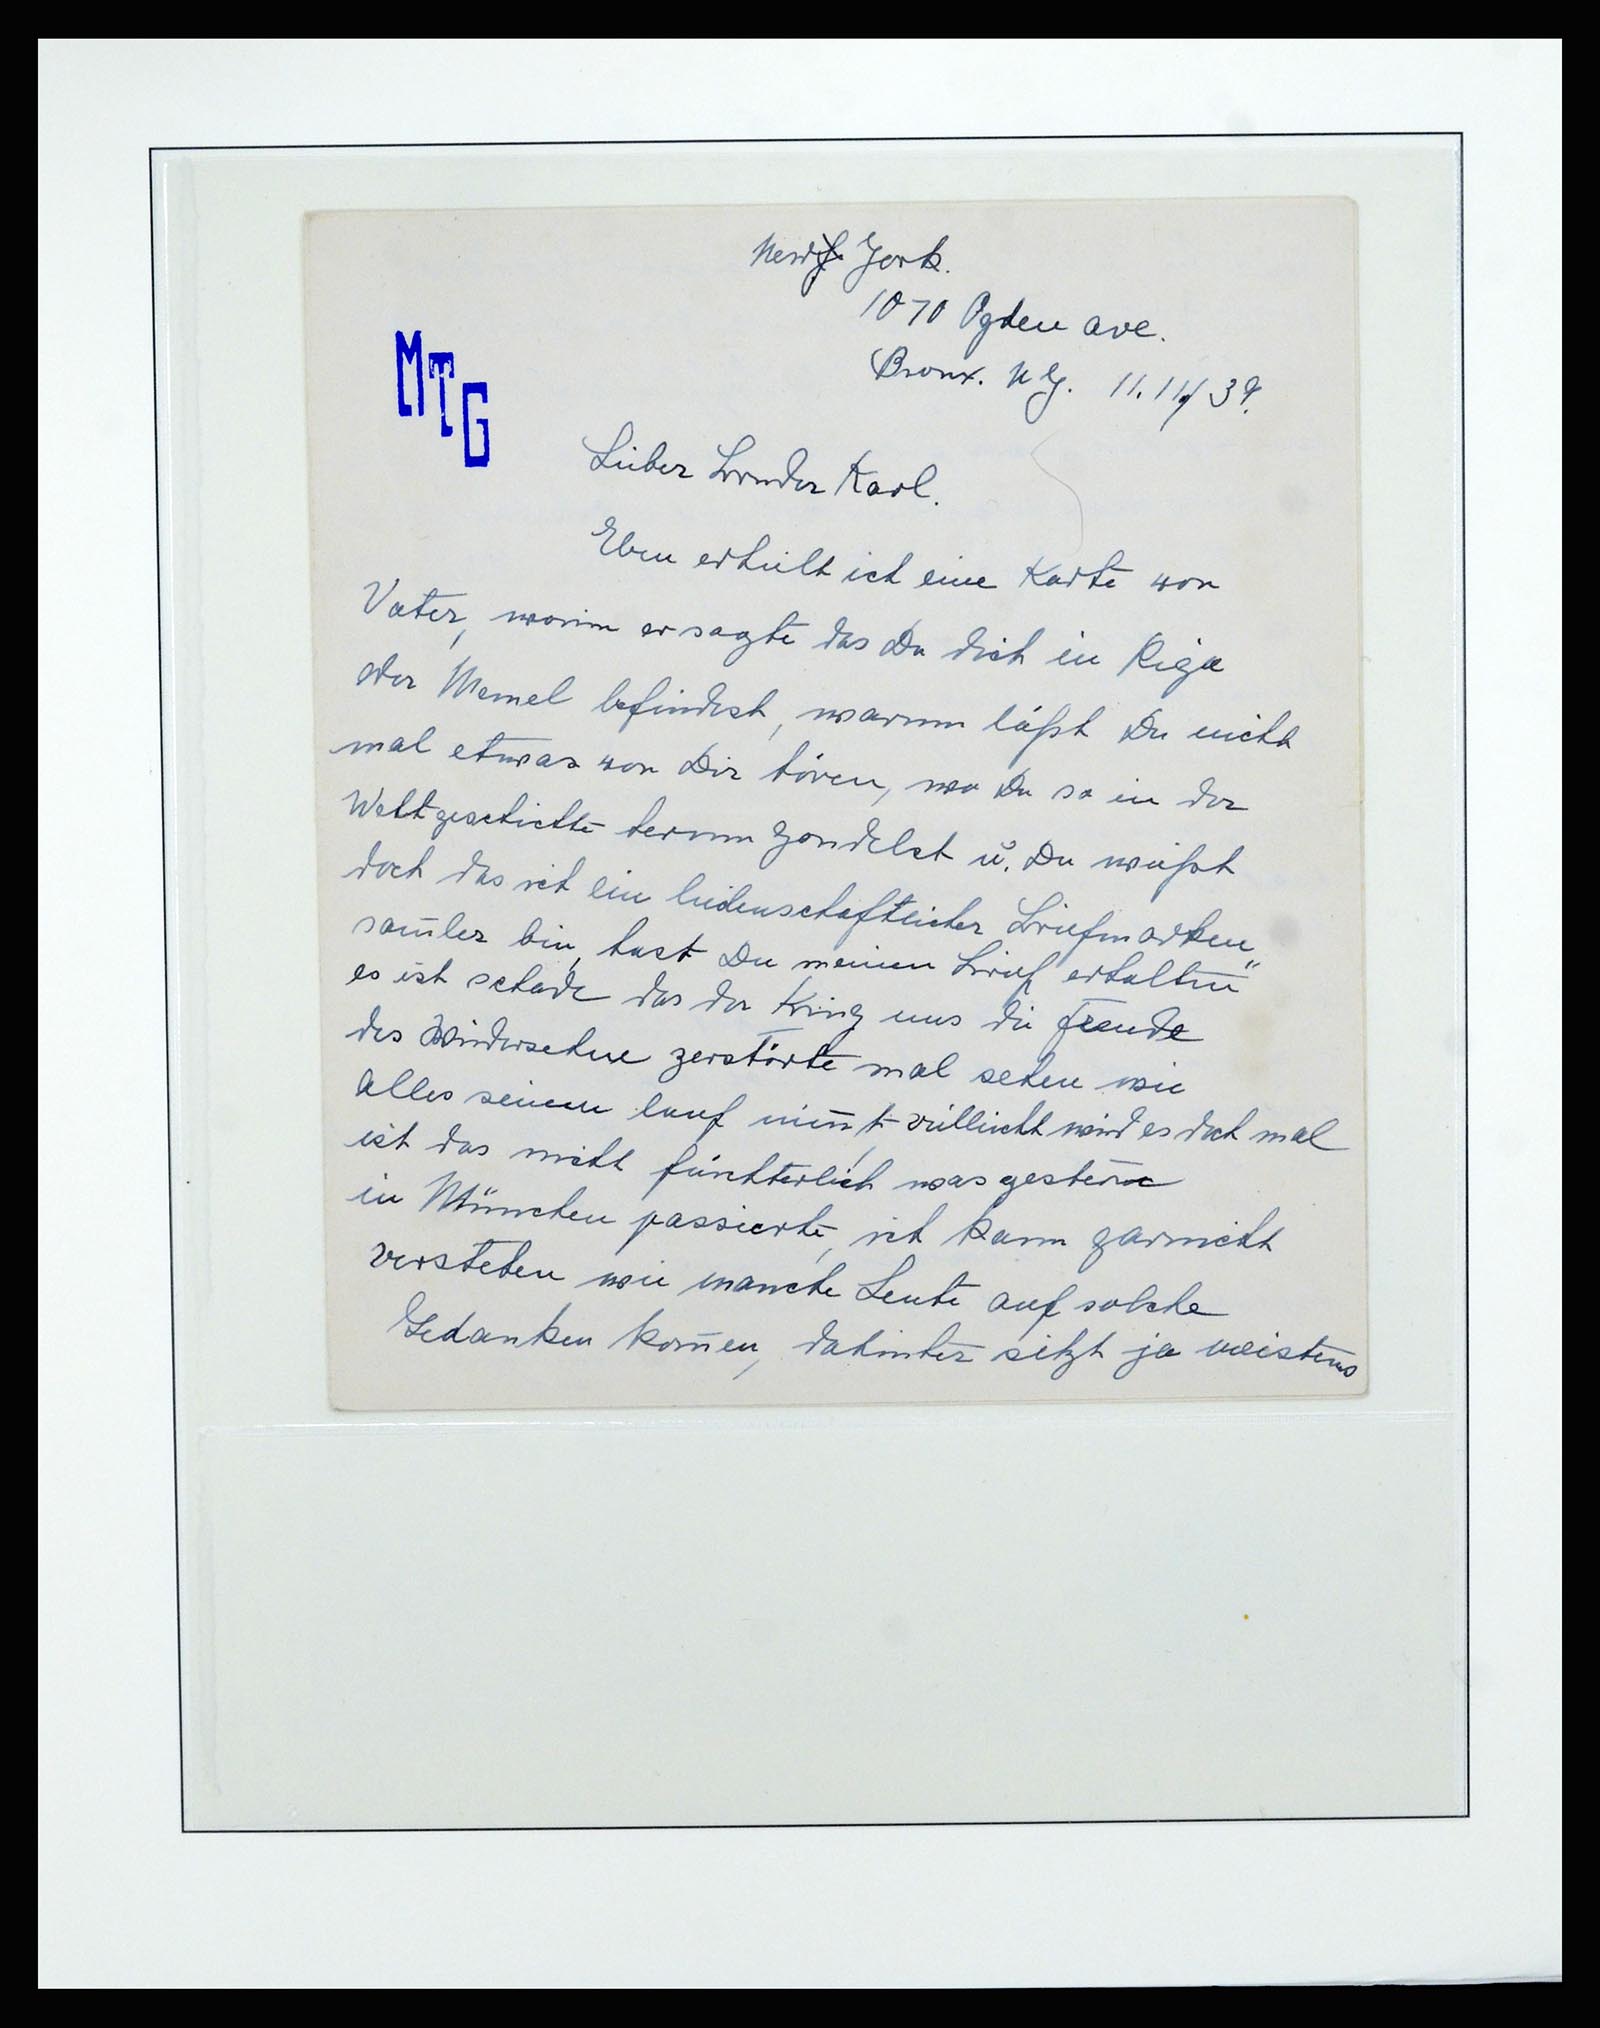 New York.
1070 Ogden Ave.
Bronx. N.Y. 11.11./39.
MTG
Lieber Bruder Karl.
Eben erhielt ich eine Karte von
Vater, worin er sagte das Du dich in Riga
oder Memel befindest, warum läßt Du nicht
mal etwas von Dir hören, wo Du so in der
Weltgeschichte herum gondelst u. Du weißt
doch das ich ein leidenschaftlicher Briefmarken„
sam̄ler bin, hast Du meinen Brief erhalten"
es ist schade das der Krieg uns die Freude
des Wiedersehne zerstörte mal sehen wie
alles seinem lauf nim̄t, villeicht wird es doch mal
ist das nicht fürchterlich was gestern
in München passierte, ich kann garnicht
verstehen wie manche Leute auf solche
Gedanken kom̄en, dahinter sitzt ja meistens